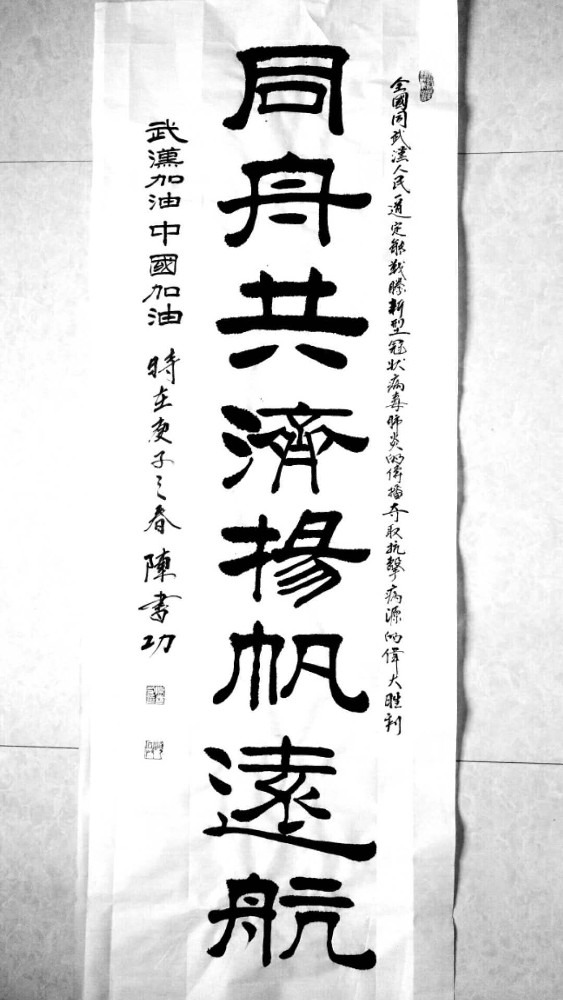 全國同武漢人民一道定能戰勝新型冠状病毒肺炎的傳播夺取抗擊病源的偉大胜利
同舟共濟揚帆遠航
武漢加油中國加油 時在庚子之春 陳書功